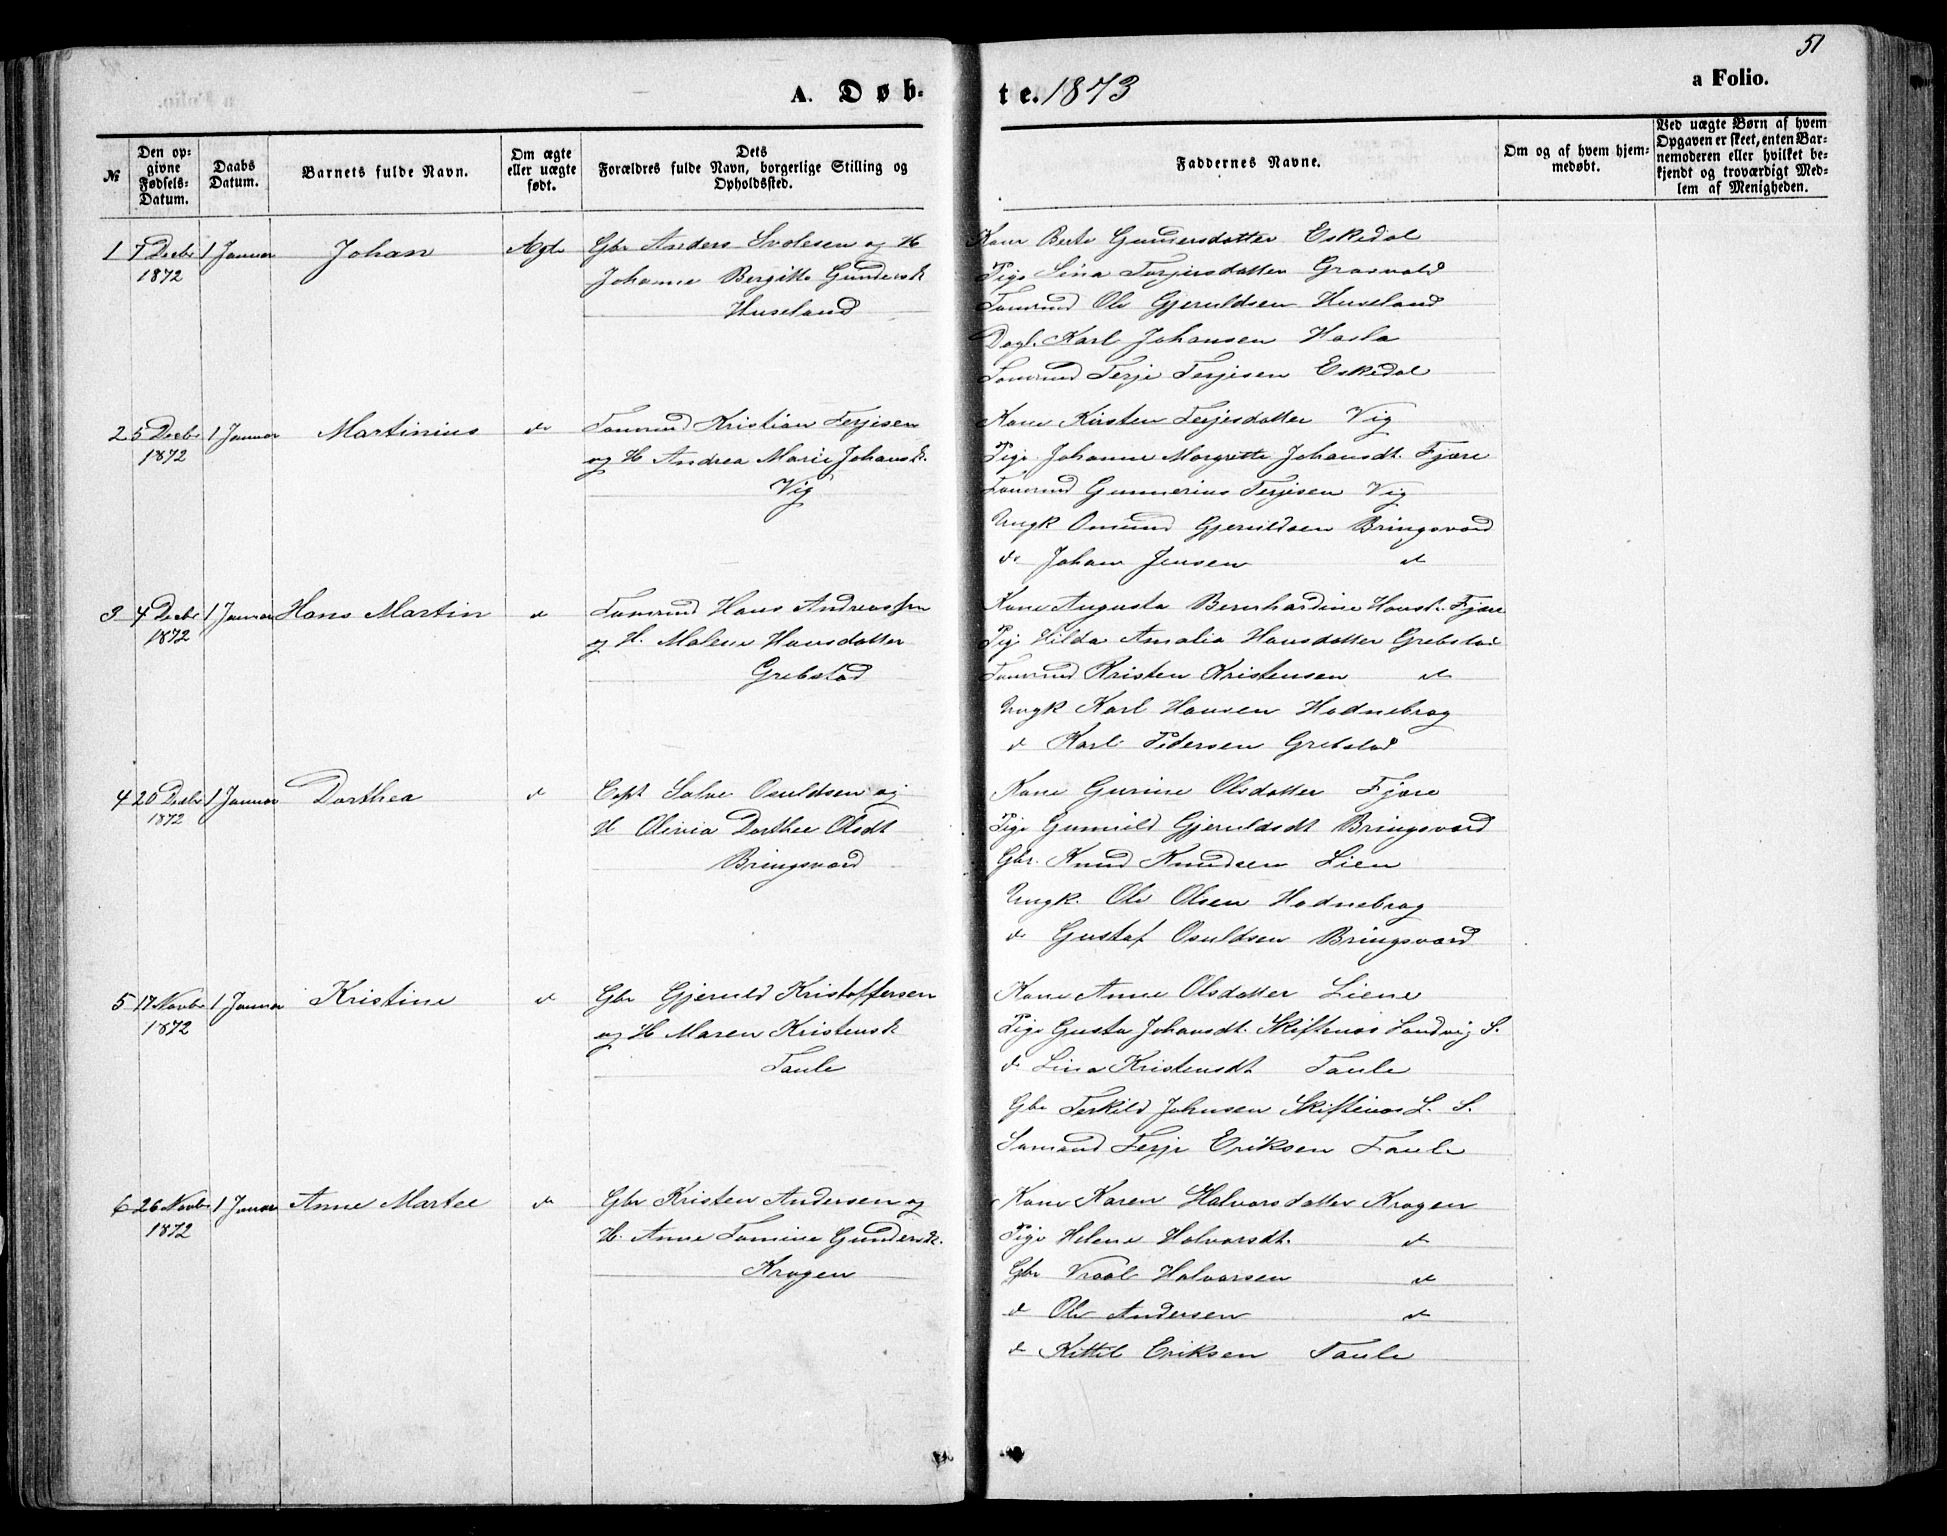 51
A. Døb-
te. 1873
a Folio.
№
Den op-
givne
Fødsels-
Datum.
Daabs
Datum.
Barnets fulde Navn.
Om ægte
eller uægte
født.
Dets
Forældres fulde Navn, borgerlige Stilling og
Opholdssted.
Faddernes Navne.
Om og af hvem hjem-
medøbt.
Ved uægte Børn af hvem
Opgaven er skeet, enten Bar-
nemoderen eller hvilket be-
kjendt og troværdigt Med-
lem af Menigheden.
1 7 Decbr 1872 1 Januar Johan Ægte
Gbr Anders Svalesen og H
Johanne Bergitte Gundersd.
Huseland
Kone Berte Gundersdatter Eskedal
Pige Sina Terjersdatter Grasvald
Sømand Ole Gjeruldsen Huseland
Dagl. Karl Johansen Hasla
Sømand Terje Terjesen Eskedal
2 5 Decbr 1872 1 Januar Martinius do
Sømand Kristian Terjesen
og H Andrea Marie Johansd.
Vig
Kone Kirsten Terjesdatter Vig
Pige Johanne Margrethe Johansdt. Fjære
Sømand Gunnerius Terjesen Vig
Ungk Omund Gjeruldsen Bringsvard
do Johan Jensen do
3 4 Decbr 1872 1 Januar Hans Martin do
Sømand Hans Andreassen
og H. Malene Hansdatter
Grebstad
Kone Augusta Bernhardine Hansd. Fjære
Pig Hilda Amalia Hansdatter Grebstad
Sømand Kristen Kristensen do
Ungk Karl Hansen Hodnebrog
do Karl Pedersen Grebstad
4 20 Decbr 1872 1 Januar Dorthea do
Capt Salve Osuldsen og
H Olivia Dorthea Olsdt
Bringsvard
Kone Gurine Olsdatter Fjære
Pige Gunuld Gjeruldsdt Bringsvard
Gbr. Knud Knudsen Lien
Ungk. Ole Olsen Hodnebrog
do Gustaf Osuldsen Bringsvard
5 17 Novbr 1872 1 Januar Kristine do
Gbr Gjeruld Kristoffersen
og H Maren Kristensd.
Taule
Kone Anne Olsdatter Liene
Pige Gusta Johansdt. Skiftenes Landvig S.
do Lina Kristensdt Taule
Gbr Terkild Johnsen Skiftenes L. S.
Sømand Terje Eriksen Taule
6 26 Novbr 1872 1 Januar Anne Martee do
Gbr Kristen Andersen og
H. Anne Tomine Gundersd.
Krogen
Kone Karen Halvorsdatter Krogen
Pige Helene Halvorsdt. do
Gbr Vraal Halvorsen do
do Ole Andersen do
do Kittil Eriksen Taule